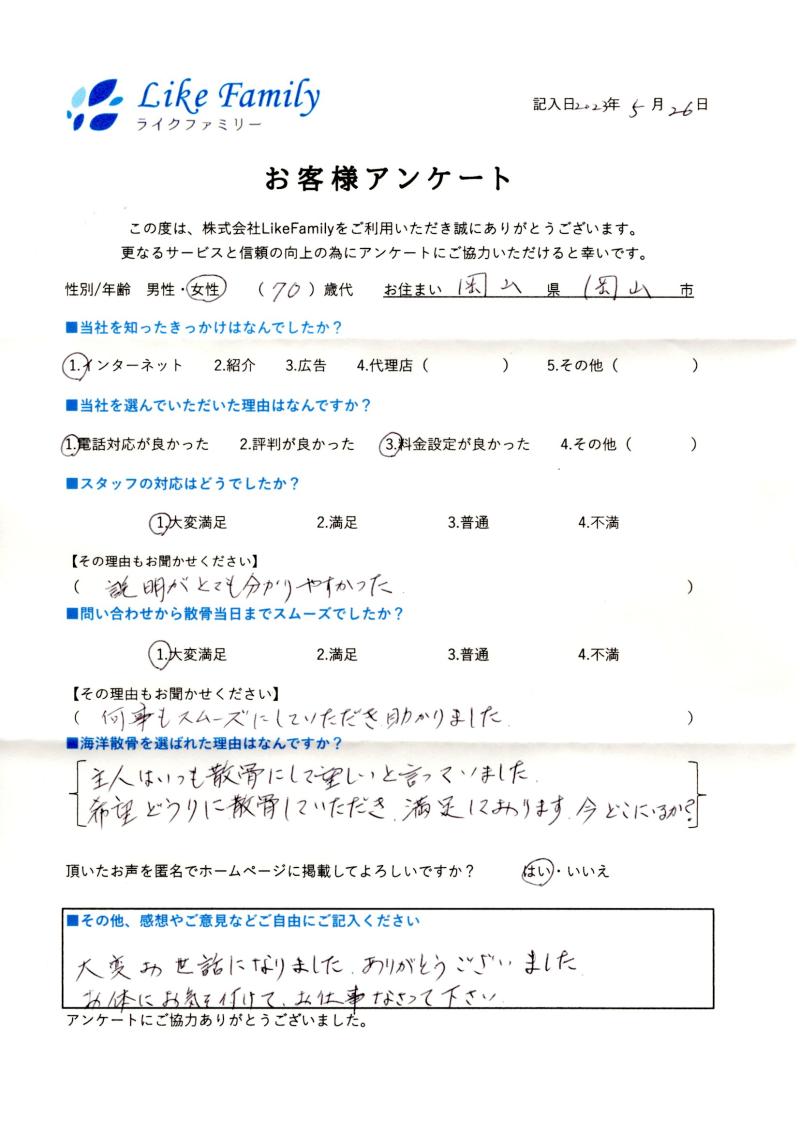 Like Family
ライクファミリー
記入日2023年 5月 26日
お客様アンケート
この度は、株式会社LikeFamilyをご利用いただき誠にありがとうございます。
更なるサービスと信頼の向上の為にアンケートにご協力いただけると幸いです。
性別/年齢 男性・女性 （70）歳代 お住まい 岡山 県 岡山 市
■当社を知ったきっかけはなんでしたか？
1.インターネット 2.紹介 3.広告 4.代理店（ ） 5.その他（ ）
■当社を選んでいただいた理由はなんですか？
1.電話対応が良かった 2.評判が良かった 3.料金設定が良かった 4.その他（ ）
■スタッフの対応はどうでしたか？
1.大変満足 2.満足 3.普通 4.不満
【その理由もお聞かせください】
（ 説明がとても分かりやすかった. ）
■問い合わせから散骨当日までスムーズでしたか？
1.大変満足 2.満足 3.普通 4.不満
【その理由もお聞かせください】
（ 何事もスムーズにしていただき助かりました. ）
■海洋散骨を選ばれた理由はなんですか？
主人はいつも散骨にして望しいと言っていました.
希望どうりに散骨していただき、満足しております.今どこにいるか?
頂いたお声を匿名でホームページに掲載してよろしいですか？ はい・いいえ
■その他、感想やご意見などご自由にご記入ください
大変お世話になりました.ありがとうございました
お体にお気を付けて、お仕事なさって下さい.
アンケートにご協力ありがとうございました。